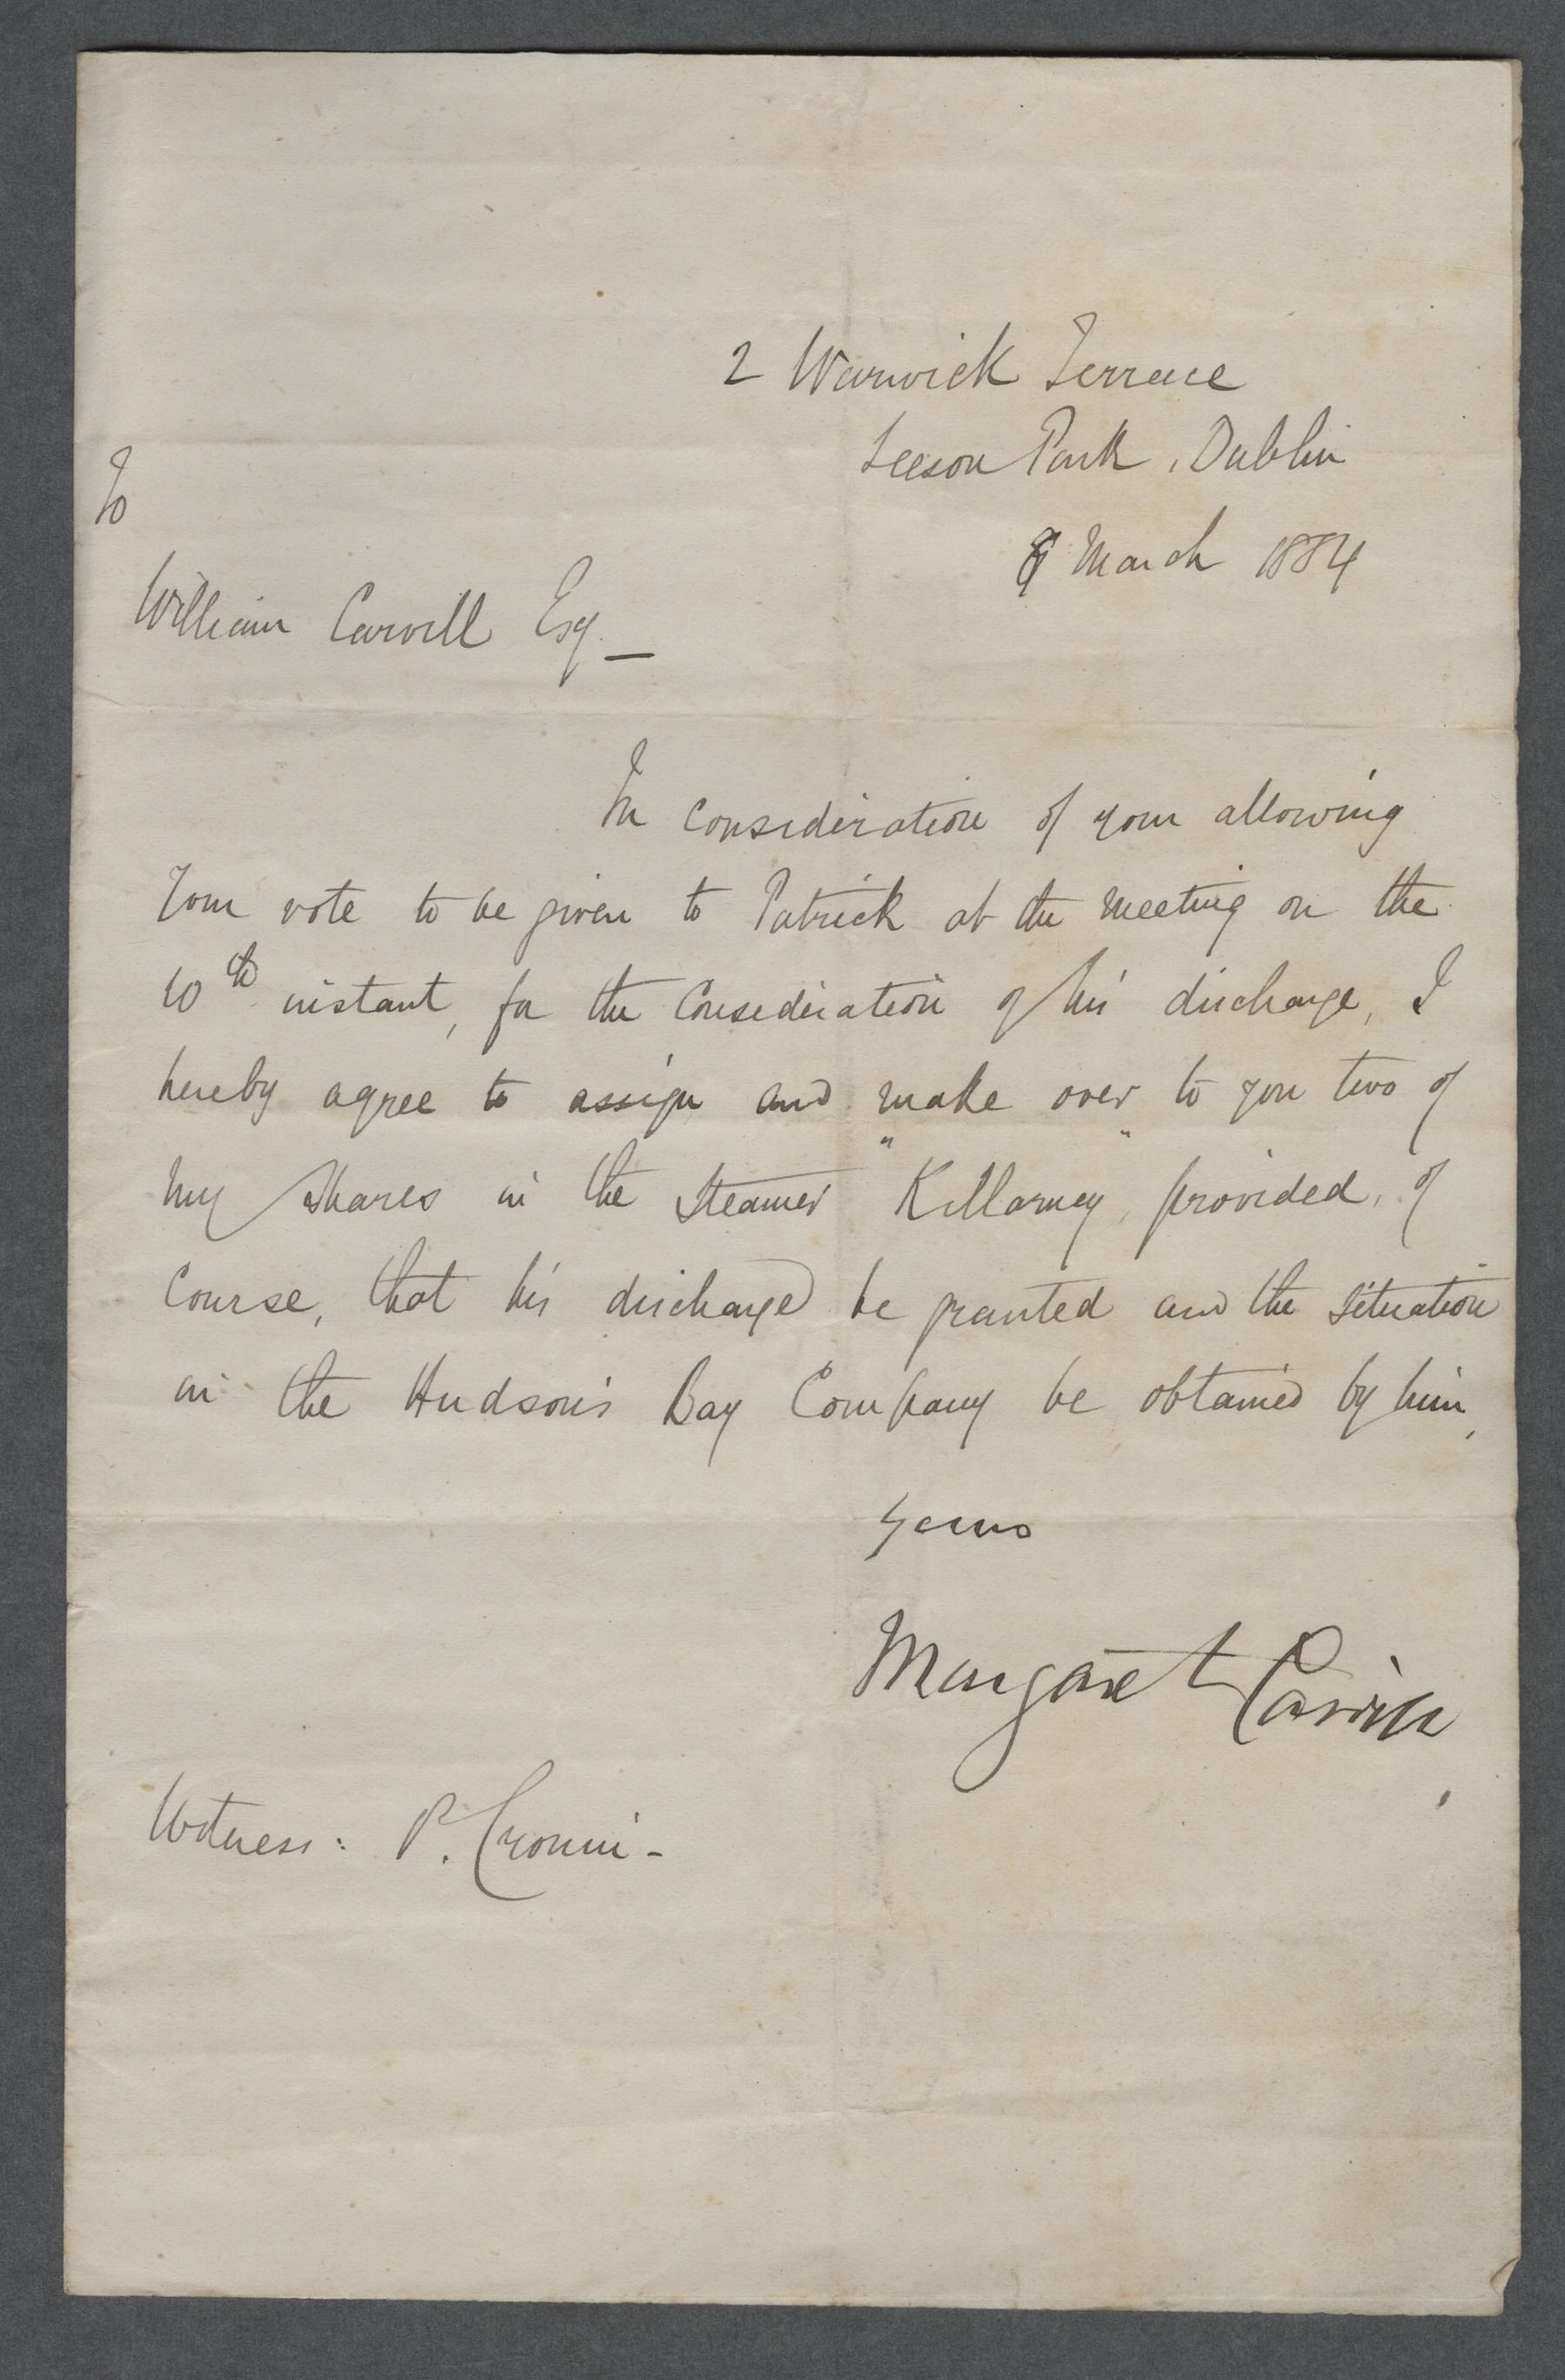 2 Warwick Terrace
Leeson Park, Dublin
8 March 1884
To
William Carvill Esq_
In consideration of your allowing
Your vote to be given to Patrick at the meeting on the
10th instant, for the Consideration of his discharge, I
hereby agree to assign and make over to you two of
my Shares in the Steamer "Killarney", provided, of
Course, that his discharge be granted and the situation
in the Hudson's Bay Company be obtained by him,
Yours
Margaret Carvill
Witness: P. Cronin -